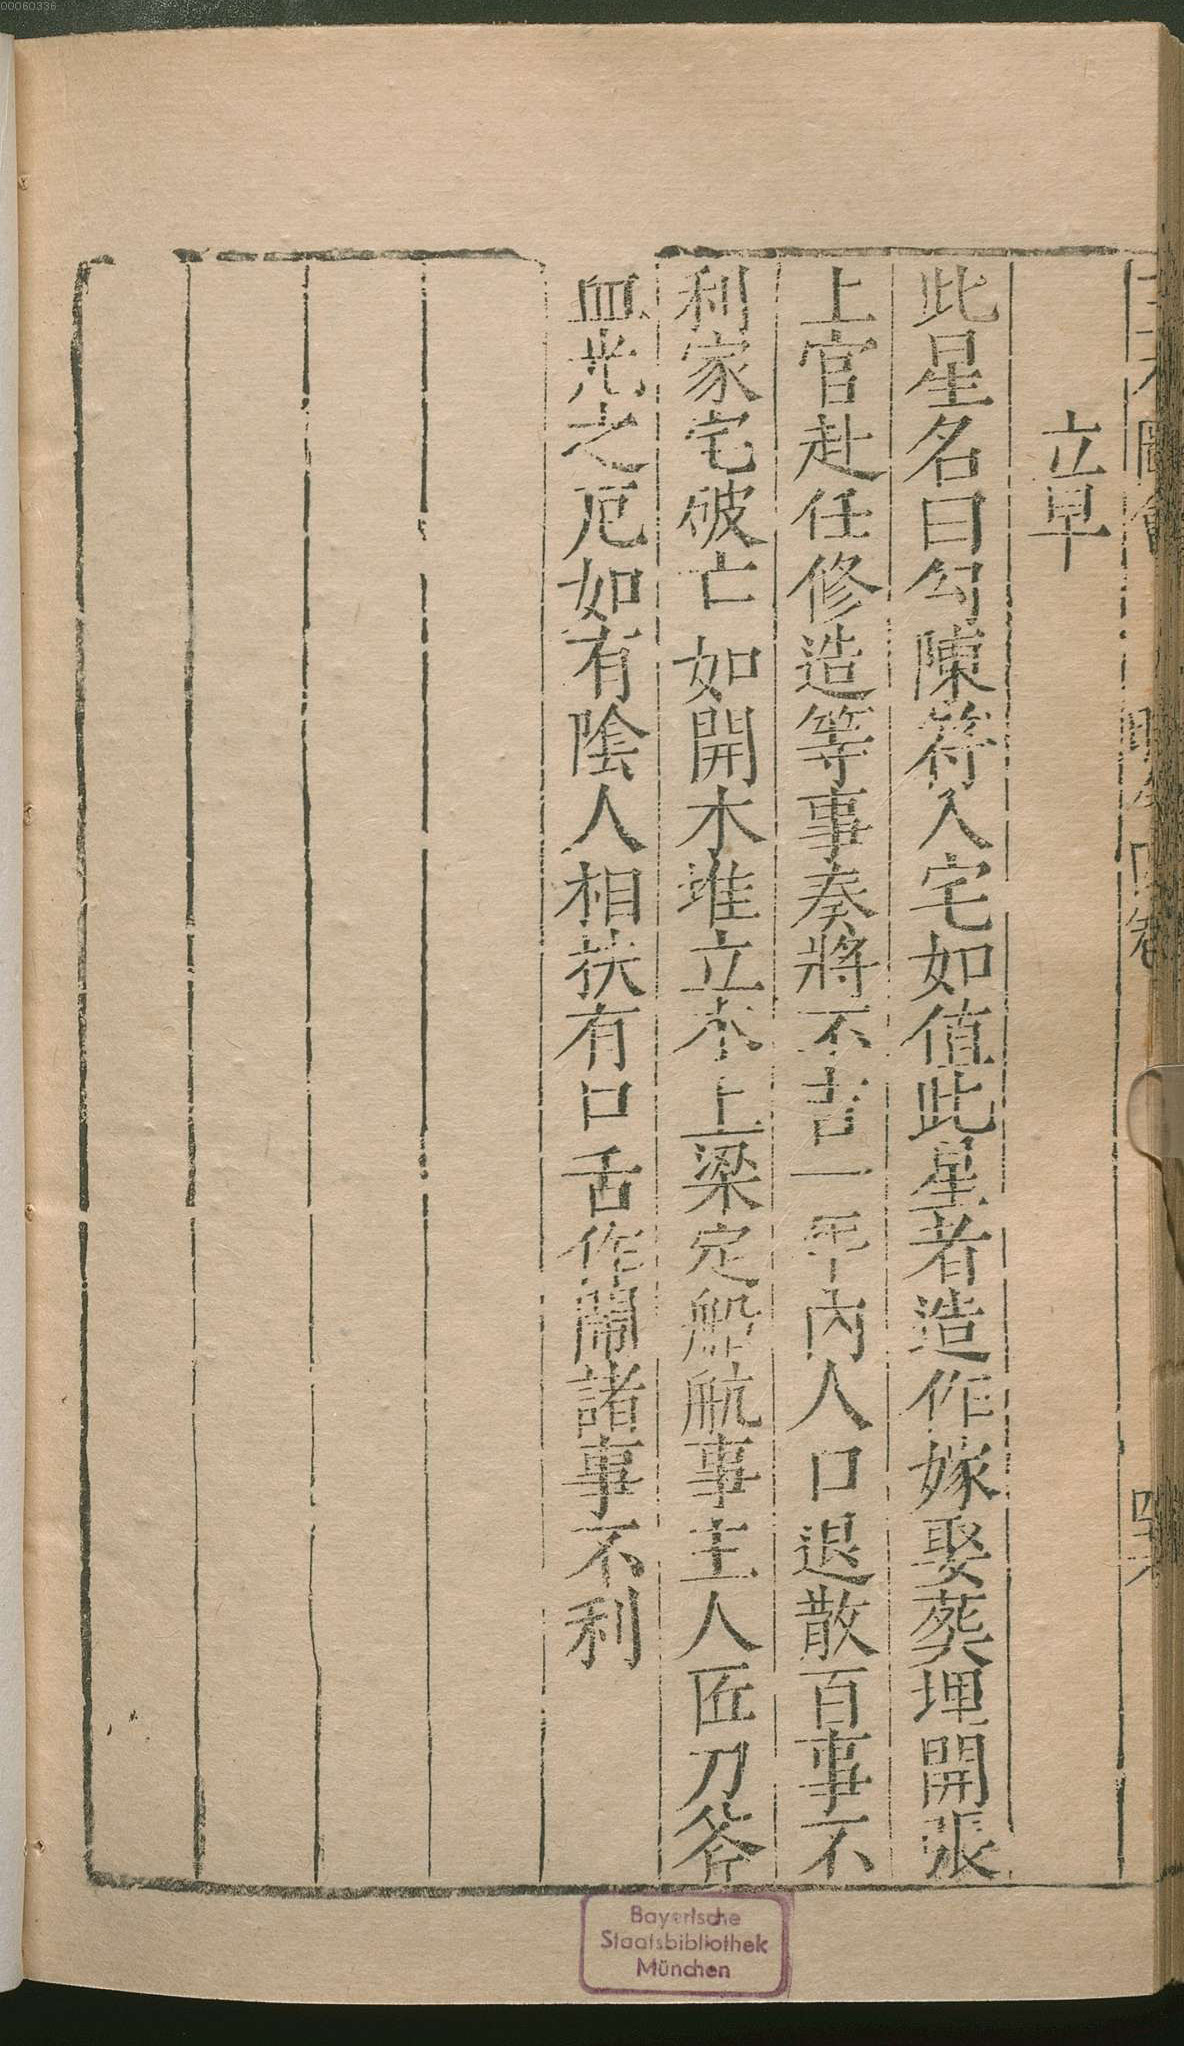 立早
此星名曰勾陳符入宅如值此星者造作嫁娶葬埋開張
上官赴任修造等事奏將不吉一年內人口退散百事不
利家宅破亡如開木堆立木上梁定船航事主人匠刀斧
血光之厄如有陰人相扶有口舌作鬧諸事不利
Bayerische
Staatsbibliothek
München
00060336